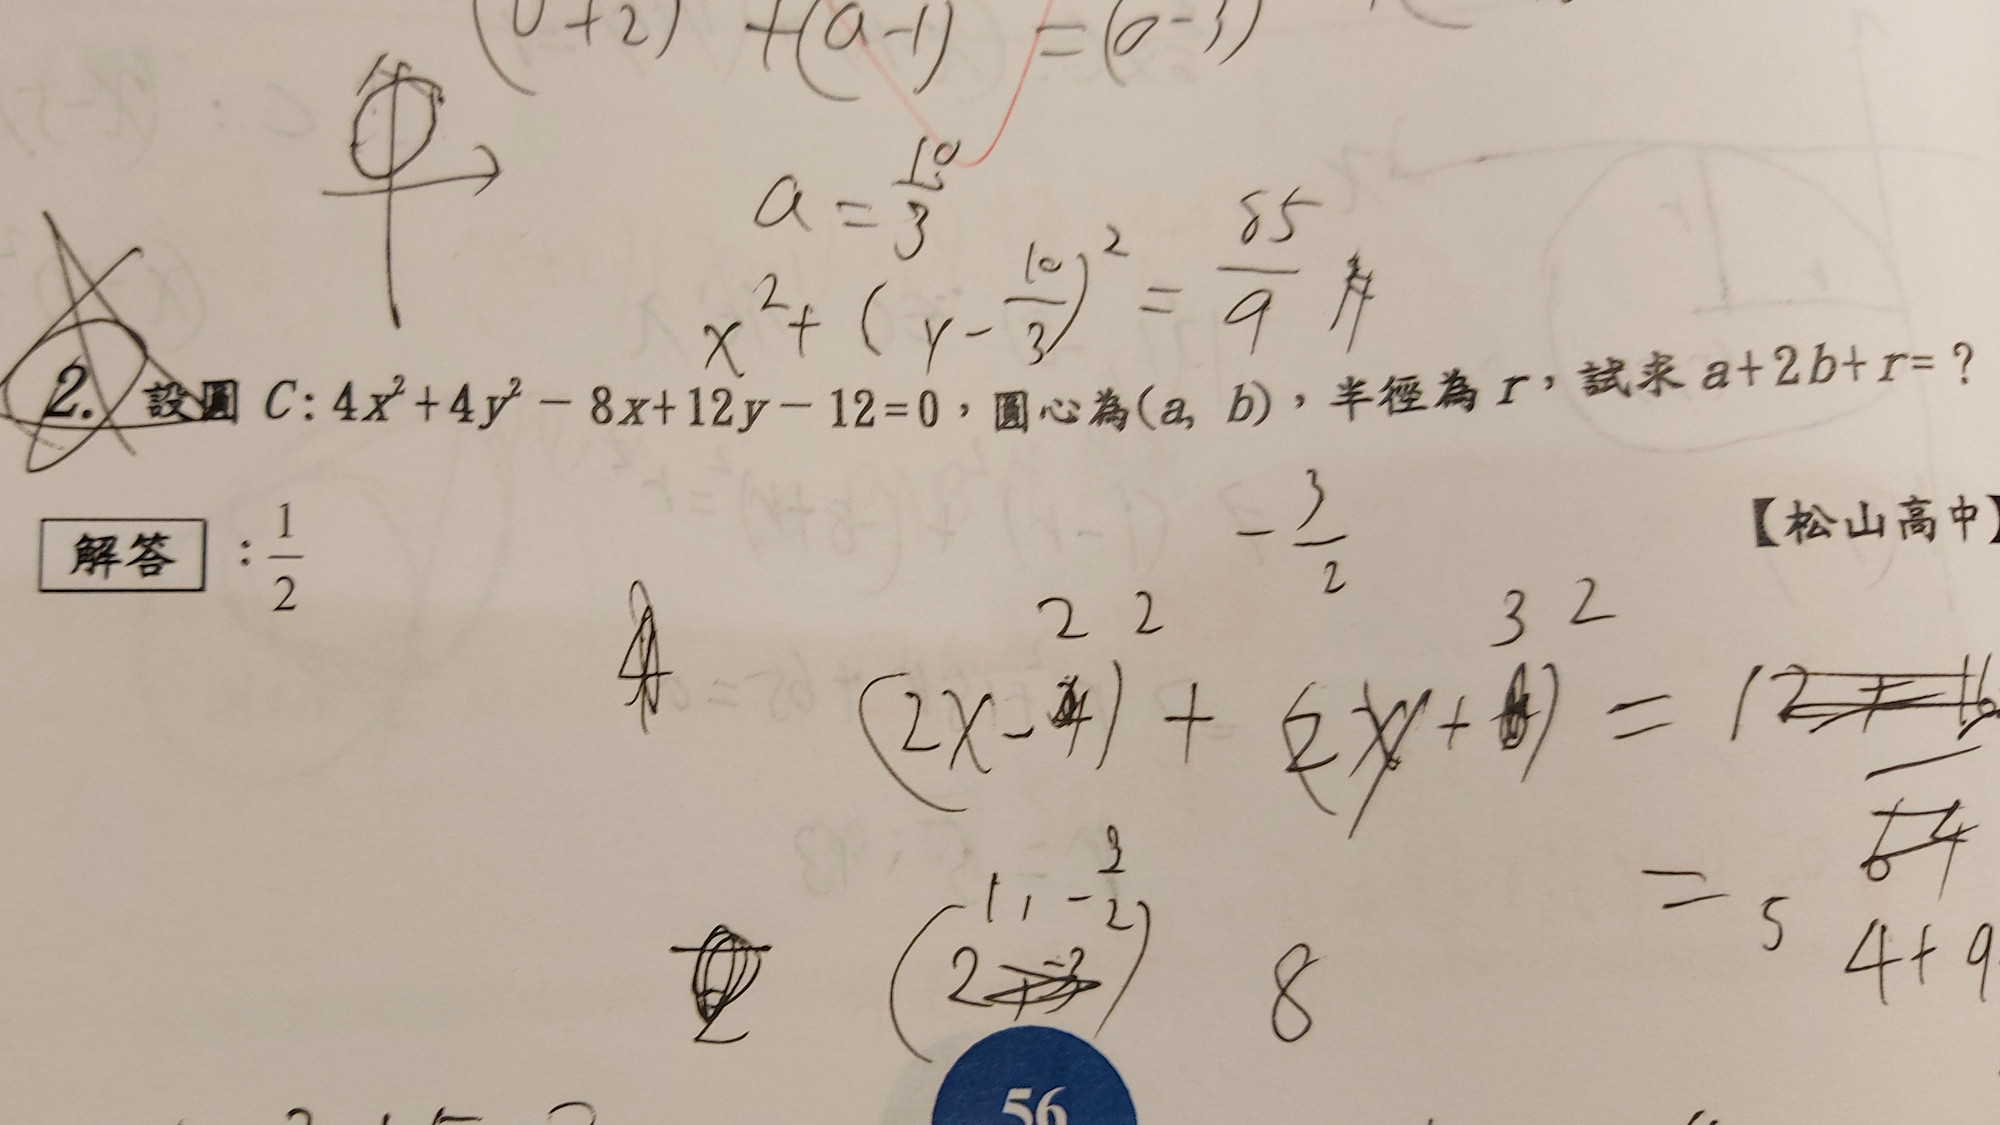 +(a-1) =
a = 10/3
x² + (y - 10/3)² = 85/9
2. 設圓 C: 4x²+4y²-8x+12y-12=0，圓心為(a, b)，半徑為 r，試求 a+2b+r=？
【松山高中】
解答 : 1/2
- 3/2
2 2 3 2
(2x- ) + (2y+ ) = 12+16
64
= 5 4+9
(1, -3/2)
2 8
56